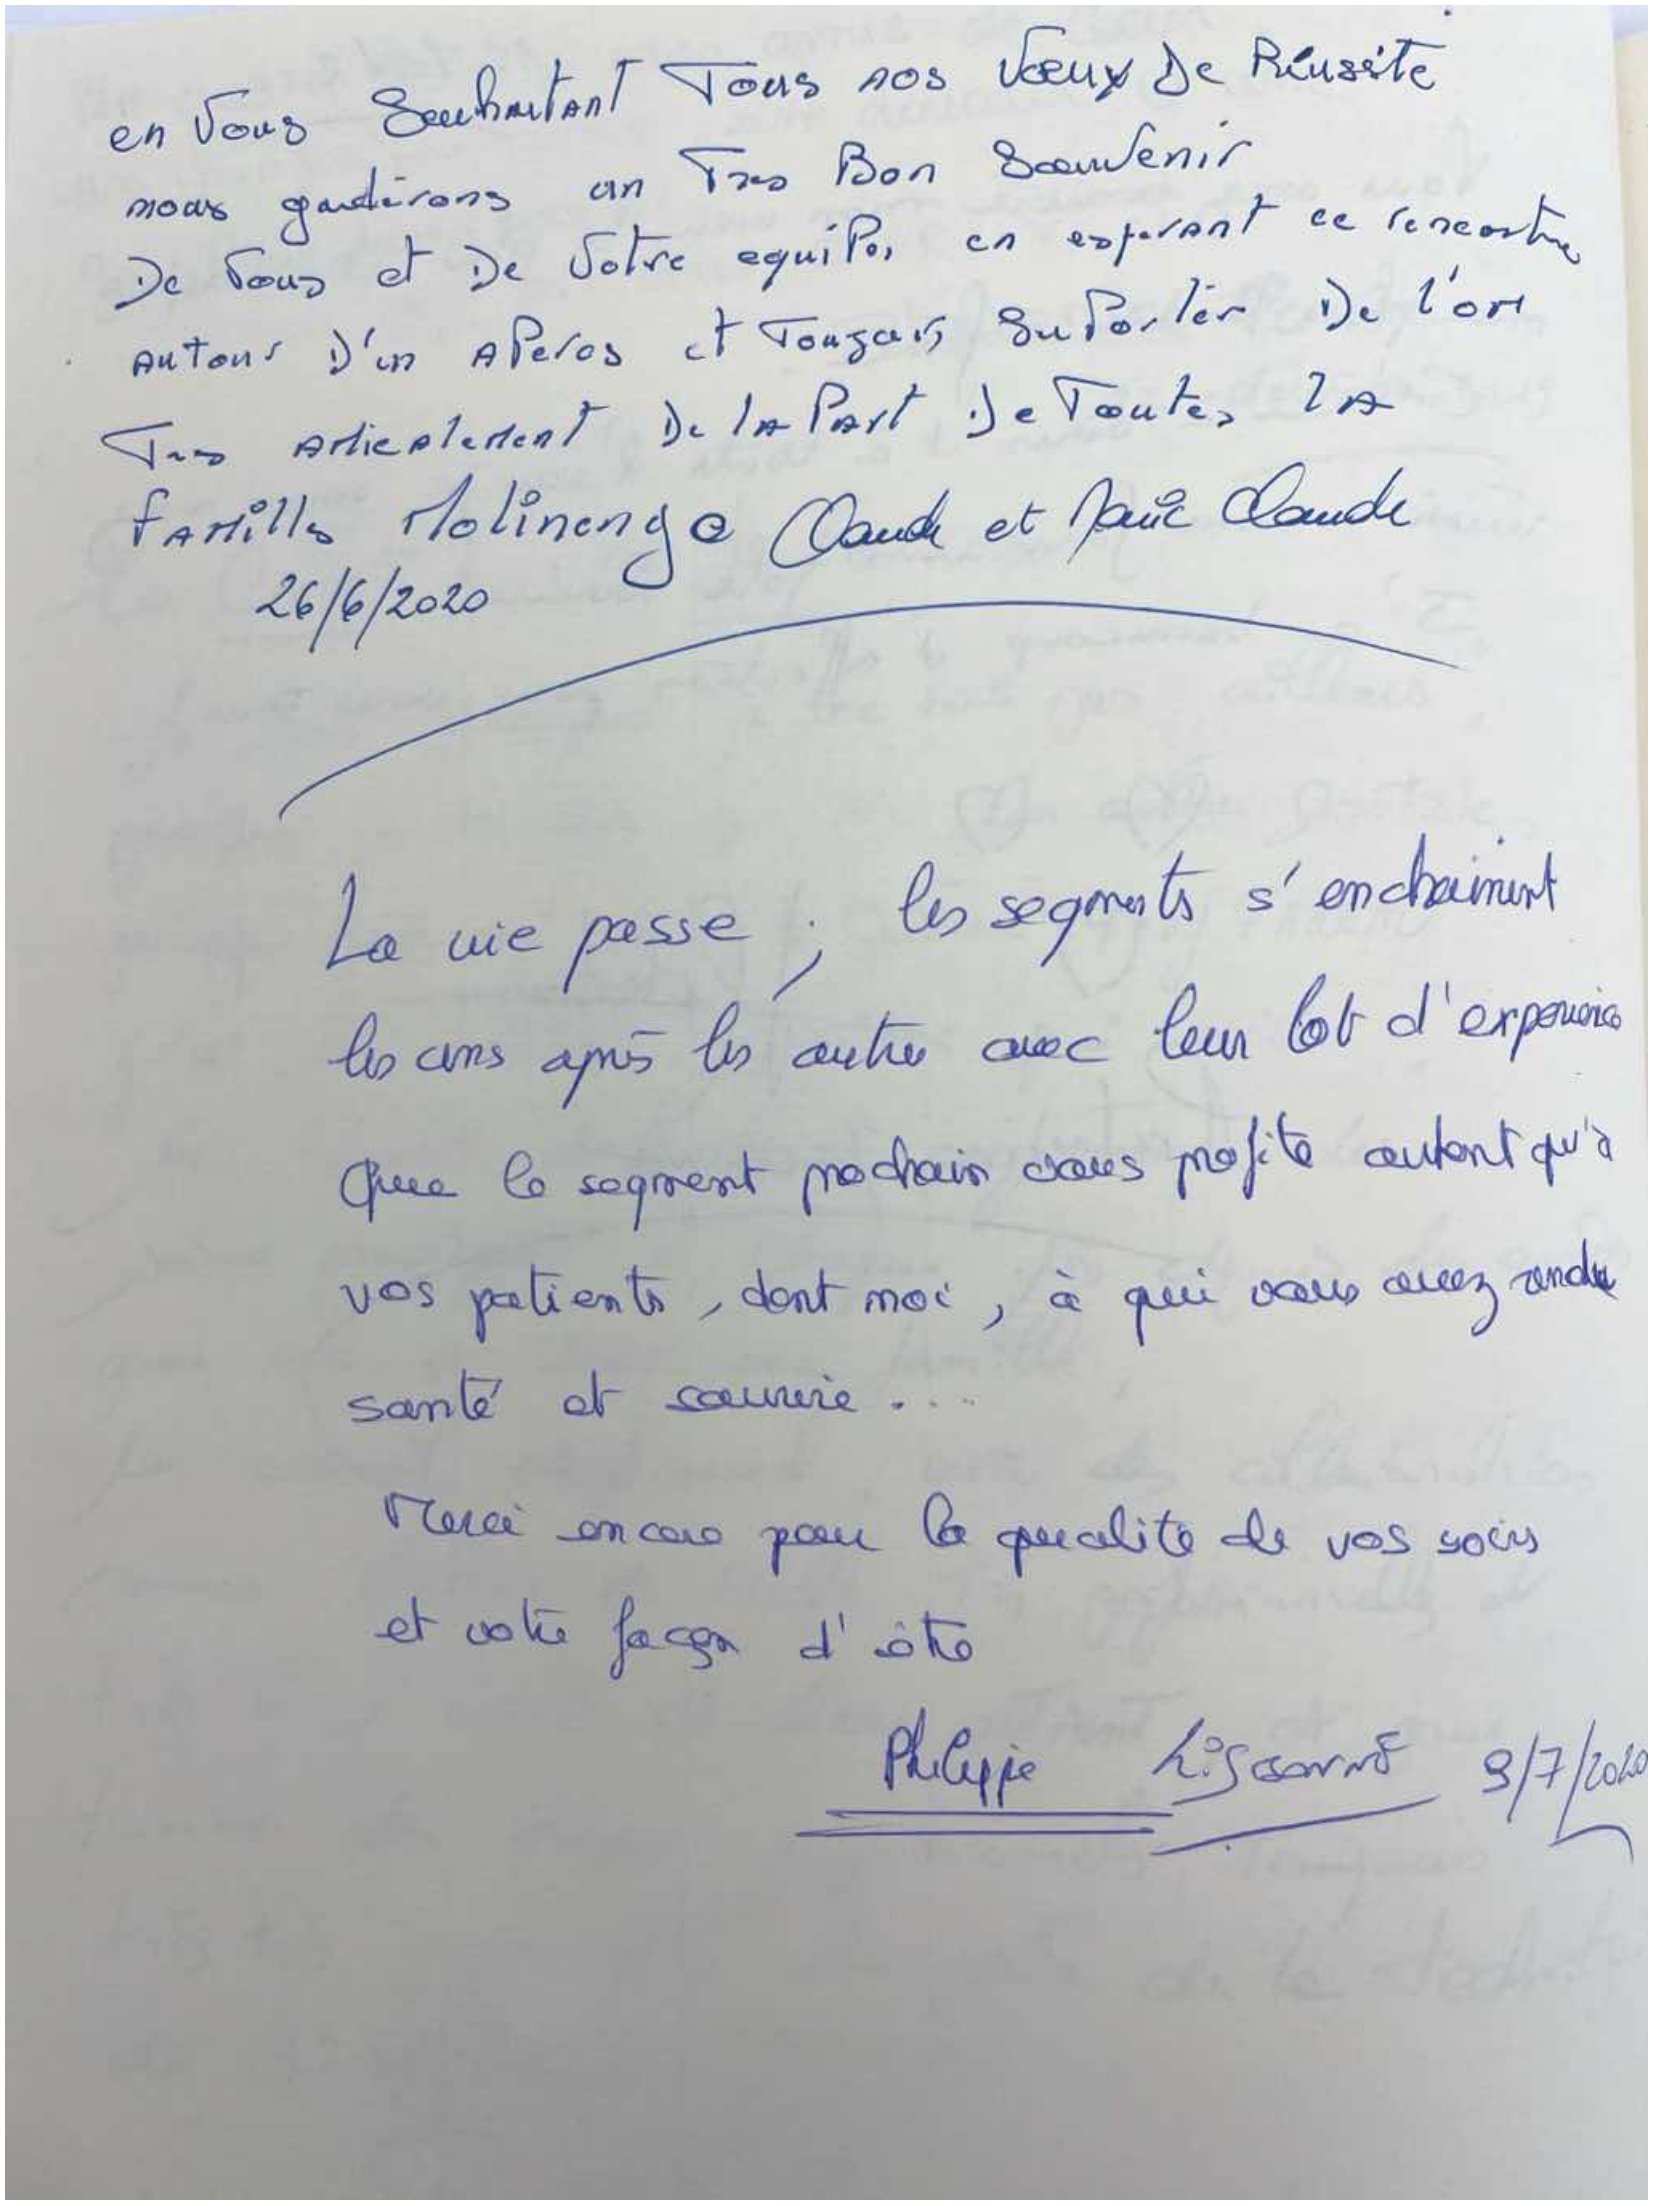 en Vous Souhaitant Tous nos Vœux De Réussite
nous garderons un Tres Bon Souvenir
De Vous et De Votre equipe, en esperant ce rencontre
autour D'un aPeros et Toujours SuPorter De l'OM
Tres amicalement De la Part De Toutes la
famille Molinengo Claude et Marie Claude
26/6/2020
La vie passe ; les segments s'enchainent
les uns après les autres avec leur lot d'experiences
Que le segment prochain vous profite autant qu'à
vos patients, dont moi, à qui vous avez rendu
santé et sourire ....
Merci encore pour la qualité de vos soins
et votre façon d'être
Philippe 9/7/2020